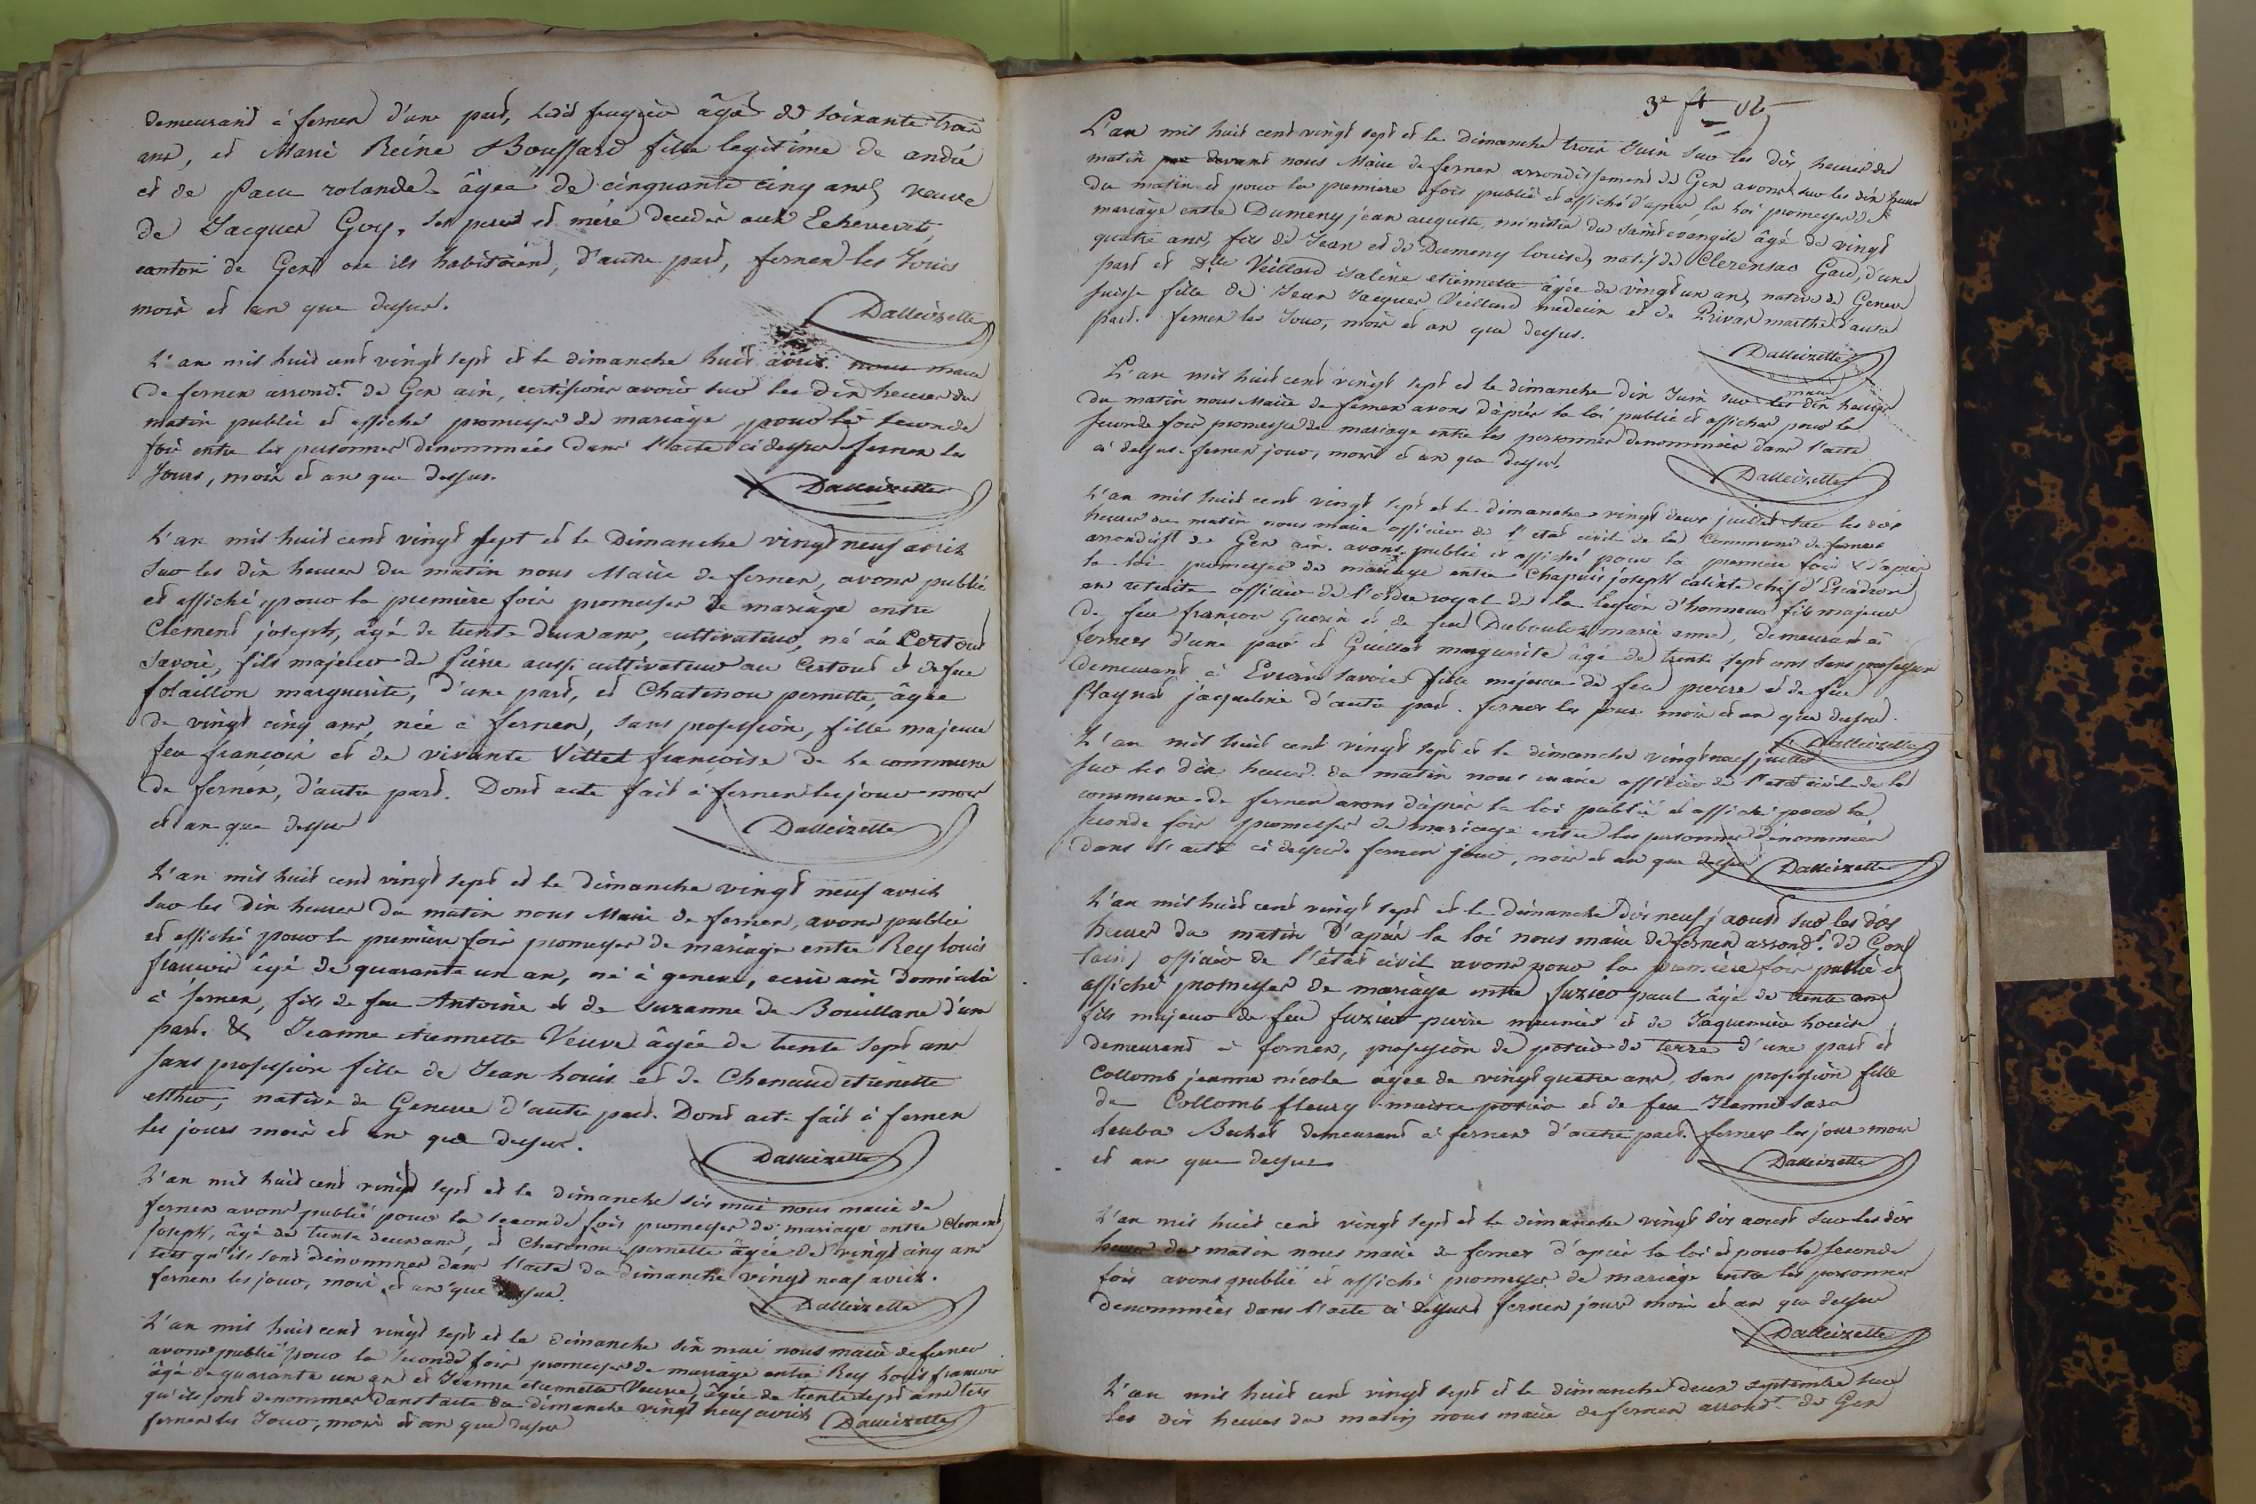 demeurant à fernex d'une part, ledit âgé de soixante trois
ans, et Marie Reine Boussard fille legitime de andré
et de rolande âgée de cinquante cinq ans, veuve
de Jacques Goy, ses pere et mére decedés aux Echevenex,
canton de Gex ou ils habitoient, d'autre part, fernex les Jours
mois et an que dessus.
Dalleizette
L'an mil huit cent vingt sept et le dimanche huit avril nous maire
de fernex arrond.t de Gex ain, certifions avoir sur les dix heures du
matin publié et affiché promesses de mariage pour la seconde
fois entre les personnes denommées dans l'acte ci dessus fernex les
Jours, mois et an que dessus.
Dalleizette
L'an mil huit cent vingt sept et le Dimanche vingt neuf avril
sur les dix heures du matin nous Maire de fernex, avons publié
et affiché pour la première fois promesses de mariage entre
Clément joseph, âgé de trente deux ans, cultivateur, né au
Savoie, fils majeur de Pierre aussi cultivateur au et de feue
folaillon marguerite, d'une part, et Chatenou pernette, âgée
de vingt cinq ans, née à fernex, sans profession, fille majeure
feu françois et de vivante Vittet françoise de la commune
de fernex, d'autre part. Dont acte fait à fernex les jour mois
et an que dessus
Dalleizette
L'an mil huit cent vingt sept et le dimanche vingt neuf avril
sur les dix heures du matin nous Maire de fernex, avons publié
et affiché pour la première fois promesses de mariage entre Rey louis
françois âgé de quarante un an, né à geneve, domicilié
à fernex, fils de feu Antoine et de Suzanne de Bouillane d'une
part. & Jeanne etiennette Veuve âgée de trente sept ans
sans profession fille de Jean Louis et de Chenaud etienette
esther, native de Geneve d'autre part. Dont acte fait à fernex
les jours mois et an que dessus.
Dalleizette
L'an mil huit cent vingt sept et le dimanche six mai nous maire de
fernex avons publié pour la seconde fois promesses de mariage entre Clement
Joseph, âgé de trente deux ans, et Chatenou pernette âgée de vingt cinq ans
tels qu'ils sont dénommés dans l'acte du dimanche vingt neuf avril.
fernex les jour, mois et an que dessus.
Dalleizette
L'an mil huit cent vingt sept et le dimanche six mai nous maire de fernex
avons publié pour la seconde fois promesses de mariage entre Rey Louis françois
âgé de quarante un an et Jeanne etiennette Veuve, âgée de trente sept ans tels
qu'ils sont denommés dans l'acte du dimanche vingt neuf avril
fernex les Jour, mois et an que dessus
Dalleizette
3e ft
L'an mil huit cent vingt sept et le dimanche trois Juin sur les dix heures du
matin par devant nous Maire de fernex arrondissement de Gex avons sur les dix heures
du matin et pour la premiere fois publié et affiché d'apres la loi promesses de
mariage entre Dumeny jean auguste, ministre du saint evangile âgé de vingt
quatre ans, fils de Jean et de Dumeny louise, natif de Clerensac Gard, d'une
part et Dlle Veillard isaline etiennette âgée de vingt un an, native de Geneve
suisse fille de Jean Jacques Veillard medecin et de Privas marthe d'autre
part. fernex les Jour, mois et an que dessus.
Dalleizette
L'an mil huit cent vingt sept et le dimanche dix Juin sur les dix heures
du matin nous Maire de fernex avons d'après la loi publié et affiché pour la
seconde fois promesse de mariage entre les personnes denommées dans l'acte
ci dessus. fernex jour, mois et an que dessus,
Dalleizette
L'an mil huit cent vingt sept et le dimanche vingt deux juillet sur les dix
heures du matin nous maire officier de l'etat civil de la Commune de fernex
arrondist de Gex ain. avons publié et affiché pour la premiere fois d'après
la loi promesses de mariage entre Chapuis joseph calixte chef d'Escadron
en retraite officier de l'ordre royal de la legion d'honneur fils majeur
de feu françois Guerin et de feu Duboulox marie anne, demeurant à
fernex d'une part et Guillot marguerite âgé de trente sept ans sans profession
demeurant à Evian Savoie fille majeure de feu pierre et de feue
jaqueline d'autre part. fernex les jour mois et an que dessus.
Dalleizette
L'an mil huit cent vingt sept et le dimanche vingt neuf juillet
sur les dix heures du matin nous maire officier de l'etat civil de la
commune de fernex avons d'après la loi publié et affiché pour la
seconde fois promesses de mariage entre les personnes dénommées
dans l'acte ci dessus. fernex jour, mois et an que dessus
Dalleizette
L'an mil huit cent vingt sept et le dimanche dix neuf aoust sur les dix
heures du matin d'après la loi nous maire de fernex arrond.t de Gex
(ain) officier de l'état civil avons pour la première fois publié et
affiché promesses de mariage entre fuzier paul âgé de trente ans
fils majeur de feu fuzier pierre meunier et de Jaquemier Louise
demeurant à fernex, profession de potier de terre d'une part et
Collomb jeanne nicole âgée de vingt quatre ans, sans profession fille
de Collomb fleury potier et de feu sara
Bechet demeurant à fernex d'autre part. fernex les jour mois
et an que dessus
Dalleizette
L'an mil huit cent vingt sept et le dimanche vingt six aoust sur les dix
heures du matin nous maire de fernex d'après la loi et pour la seconde
fois avons publié et affiché promesses de mariage entre les personnes
denommées dans l'acte ci dessus fernex jour mois et an que dessus
Dalleizette
L'an mil huit cent vingt sept et le dimanche deux septembre sur
les dix heures du matin nous maire de fernex arrond.t de Gex